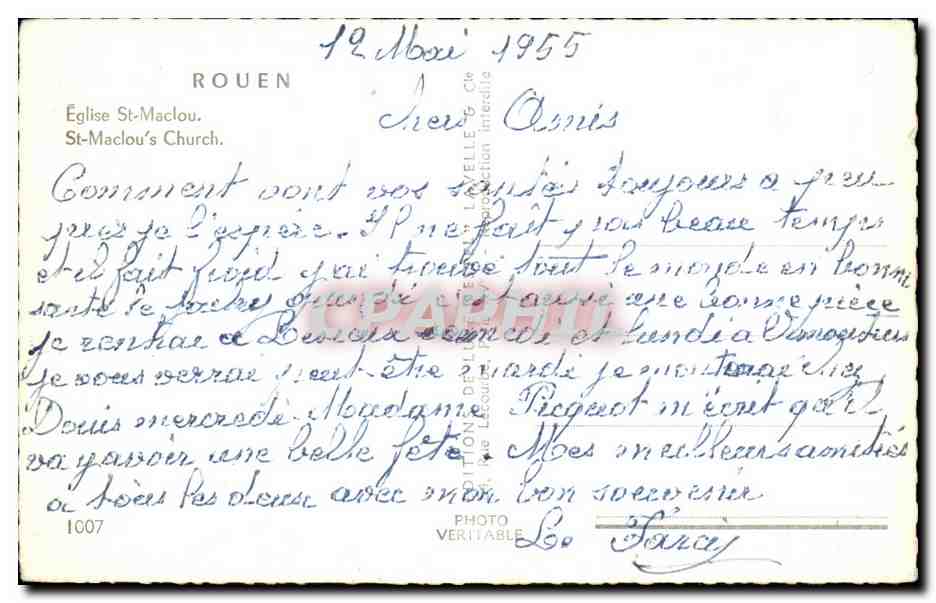 12 Mai 1955
ROUEN
Église St-Maclou.
St-Maclou's Church.
Chers Amis
Comment vont vos santés toujours a peu
près je l'espère. Il ne fait pas beau temps
et il fait froid j'ai trouvé tout le monde en bonne
santé le grandi c'est aussi une bonne pièce
je rentrai a samedi et lundi a Vimoutiers
je vous verrai peut-être mardi je monterai chez
Louis mercredi. Madame Picquot m'écrit qu'il
va y avoir une belle fête. Mes meilleurs amitiés
a tous les deux avec mon bon souvenir
1007
PHOTO
VERITABLE
Le
CPARAMA
EDITIONS DE LUXE LAVELLE & Cie
Rue Lecourbe, reproduction interdite